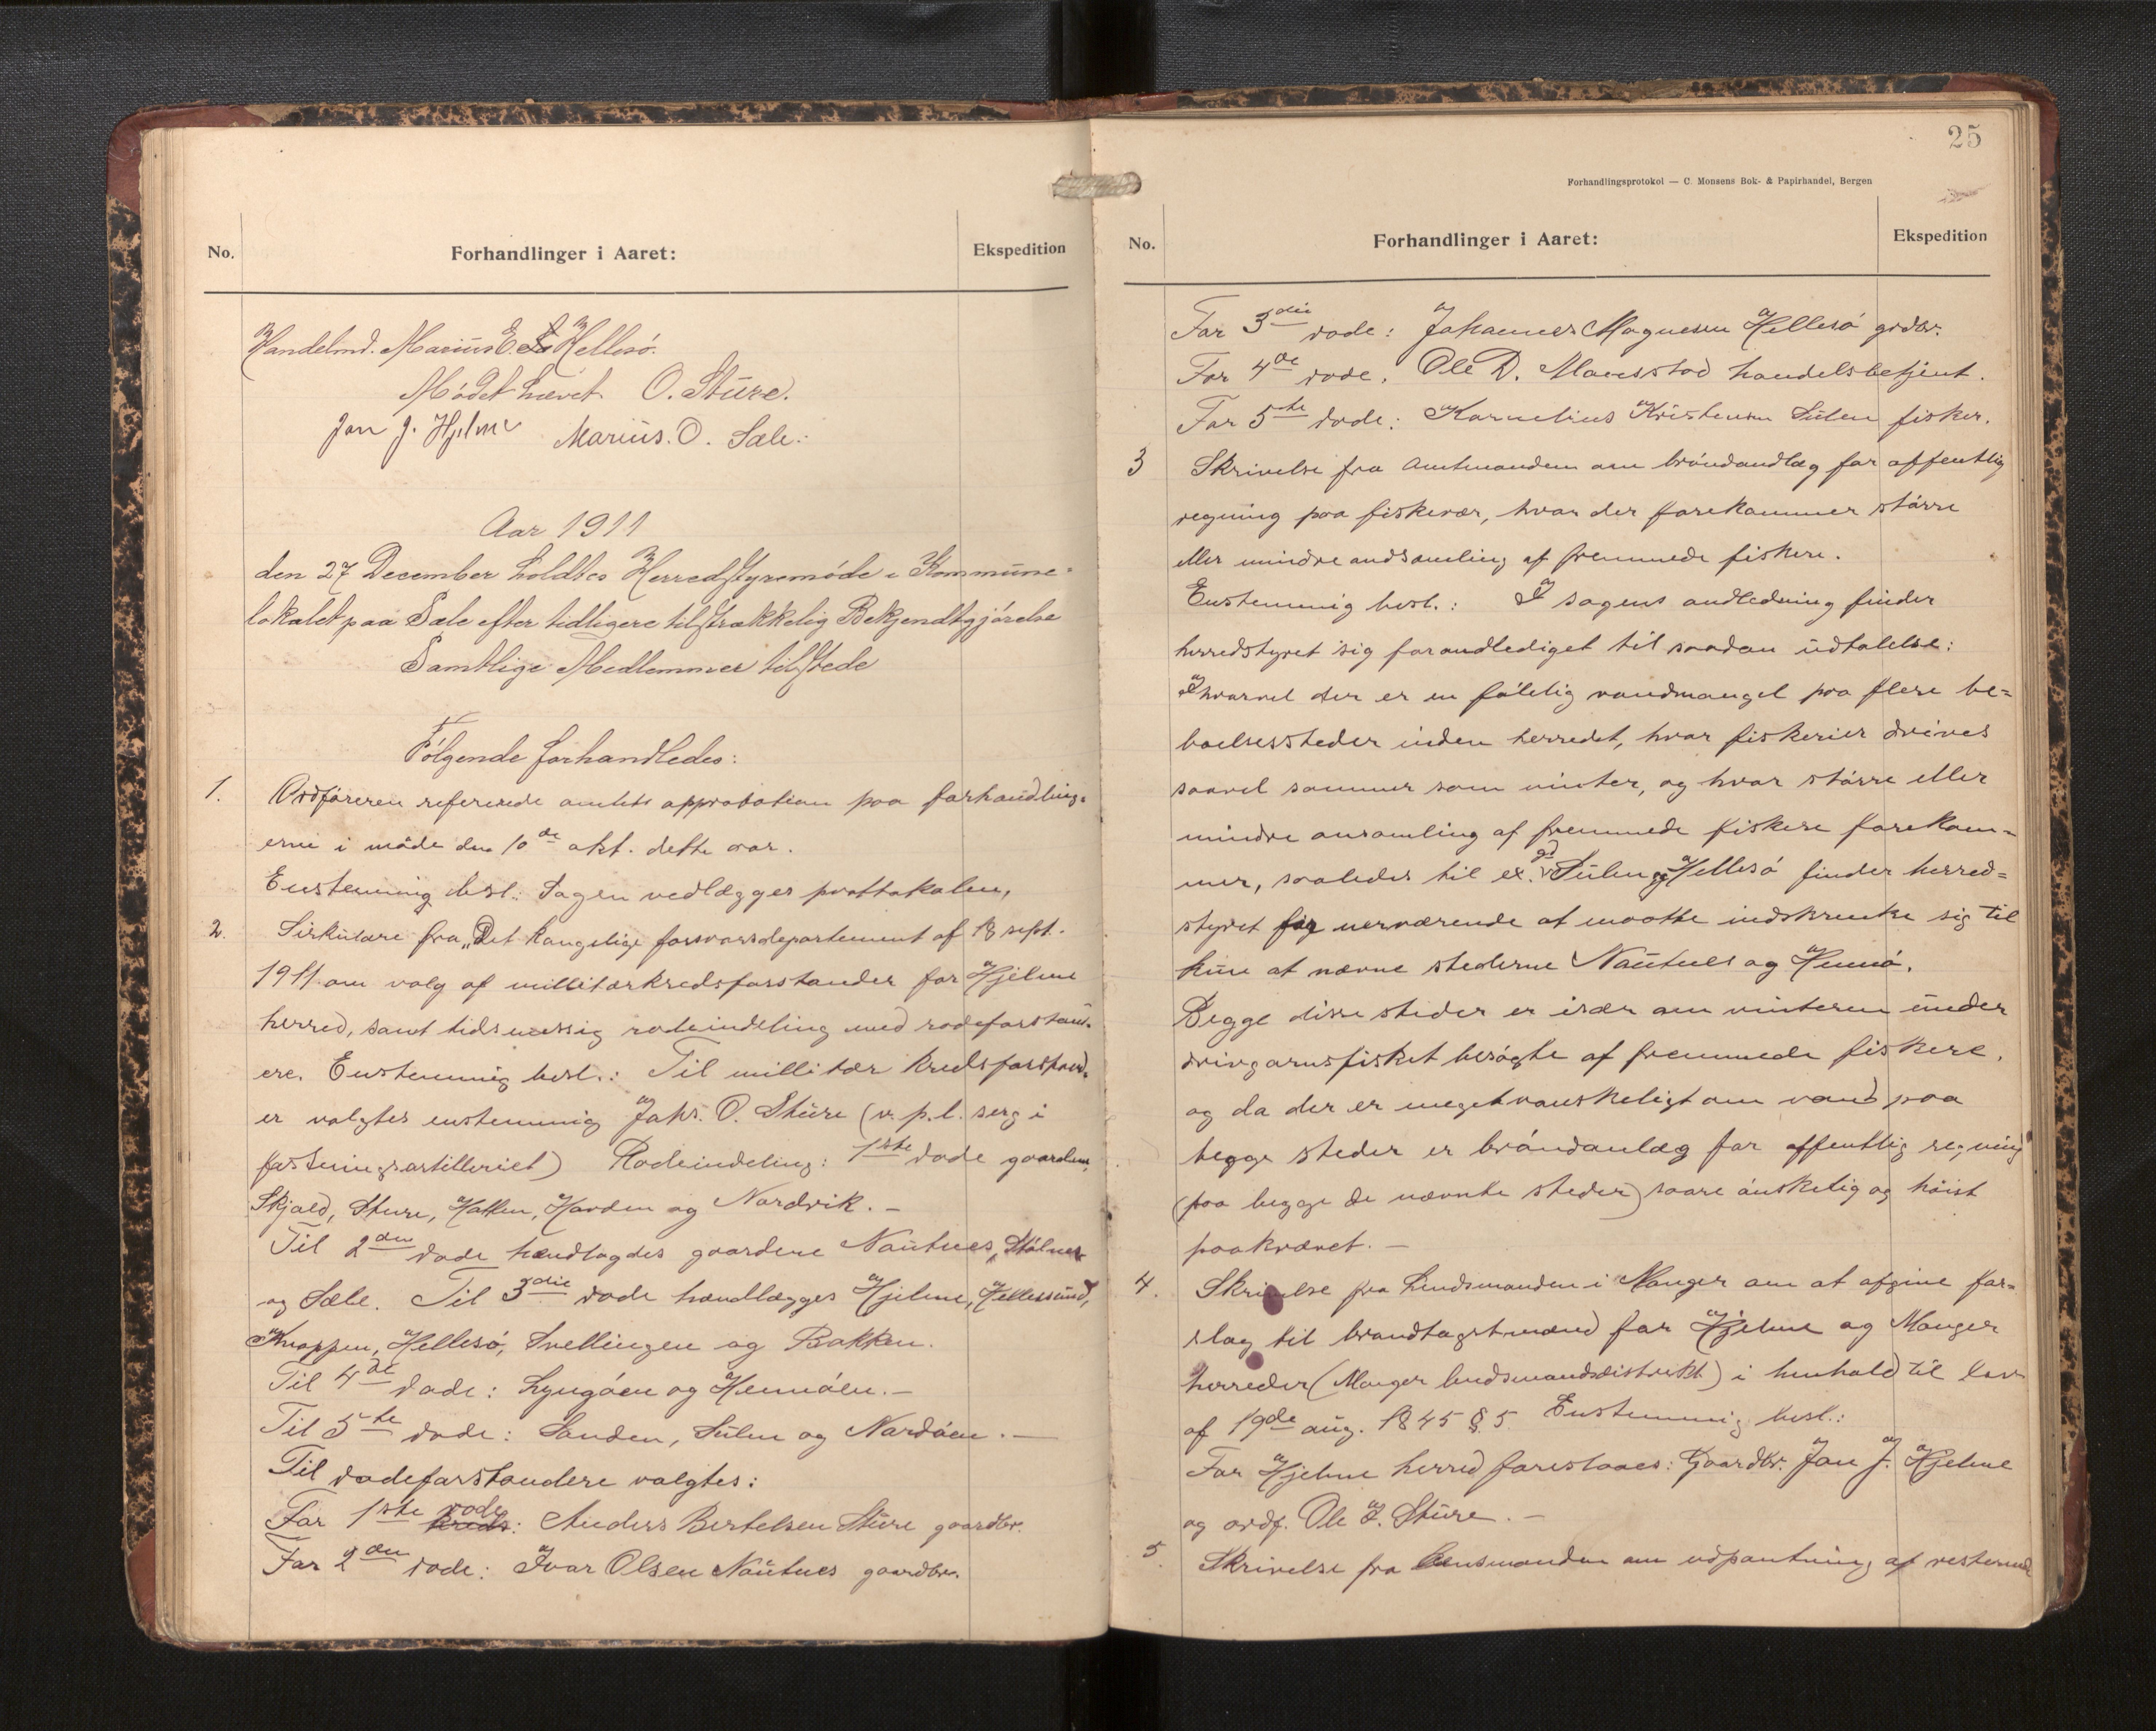 No.
Forhandlinger i Aaret:
Ekspedition
Handelmd. Marius E. Hellesö.
Mödet hævet O. Stüre.
Jon J. Hjelme Marius. O. Sæle.
Aar 1911
den 27 December holdtes Herredstyremöde i Kommüne-
lokalet paa Sæle efter tidligere tilstrækkelig Bekjendtgjörelse
Samtlige Medlemmer tilstede
Fölgende forhandledes:
1. Ordföreren refererede amtets approbation paa forhandling-
erne i möde den 10de okt. dette aar.
Enstemmig besl.: Sagen vedlægges prottokolen,
2. Sirkulære fra „Det kongelige forsvarsdepartement af 18 sept.
1911 om valg af millitærkredsforstander for Hjelme
herred, samt tidsmessig rodeinddeling med rodeforstand-
ere. Enstemmig besl.: Til millitær kredsforstand-
er valgtes enstemmig Johs. O. Stüre (v. p. l. serg i
festningsartilleriet) Rodeindeling: 1ste rode gaardene
Skjold, Sture, Hatten, Harden og Nordvik. —
Til 2den rode henlagdes gaardene Naütnes, Stölnes
og Sæle. Til 3die rode henlægges Hjelme, Hellessünd,
Knappen, Hellesö, Svellingen og Bakken.
Til 4de rode: Lyngöen og Hernöen. —
Til 5te rode: Sanden, Sülen og Nordöen. —
Til rodeforstandere valgtes:
For 1ste rode kreds: Anders Bertelsen Stüre gaardbr.
For 2den rode: Ivar Olsen Naütnes gaardbr.
25
Forhandlingsprotokol — C. Monsens Bok- & Papirhandel, Bergen
No.
Forhandlinger i Aaret:
Ekspedition
For 3die rode: Johannes Magnesen Hellesö grdbr.
For 4de rode. Ole D. handelsbetjent.
For 5te rode: Kornelius Kristensen Sülen fisker.
3 Skrivelse fra Amtmanden om bröndandlæg for offentlig
regning paa fiskevær, hvor der forekommer större
eller mindre andsamling af fremmede fiskere.
Enstemmig besl.: I sagens andledning finder
herredstyret sig forandlediget til saadan üdtalelse:
Ihvorvel der er en fölelig vandmangel paa flere be-
boelsessteder inden herredet, hvor fiskerier drives
saavel sommer som vinter, og hvor större eller
mindre ansamling af fremmede fiskere forekom-
mer, saaledes til ex. gd Sülen og Hellesö finder herred-
styret sig nerværende at maatte indskrenke sig til
kün at nævne stederne Naütnes og Hernö.
Begge disse steder er især om vinteren ünder
drivgarnsfisket besögte af fremmede fiskere,
og da der er meget vanskeligt om vand paa
begge steder er bröndanlæg for offentlig regning
(paa begge de nævnte steder) saare önskelig og höist
paakrævet. —
4. Skrivelse fra Lendsmanden i Manger om at afgive for-
slag til brandtagstmænd for Hjelme og Manger
herreder (Manger lendsmandsdistrikt) i henhold til lov
af 19de aug. 1845 § 5 Enstemmig besl.:
For Hjelme herred foreslaaes: Gaardbr. Jon J. Hjelme
og ordf. Ole J. Stüre. —
5. Skrivelse fra lensmanden om udpantning af resterende